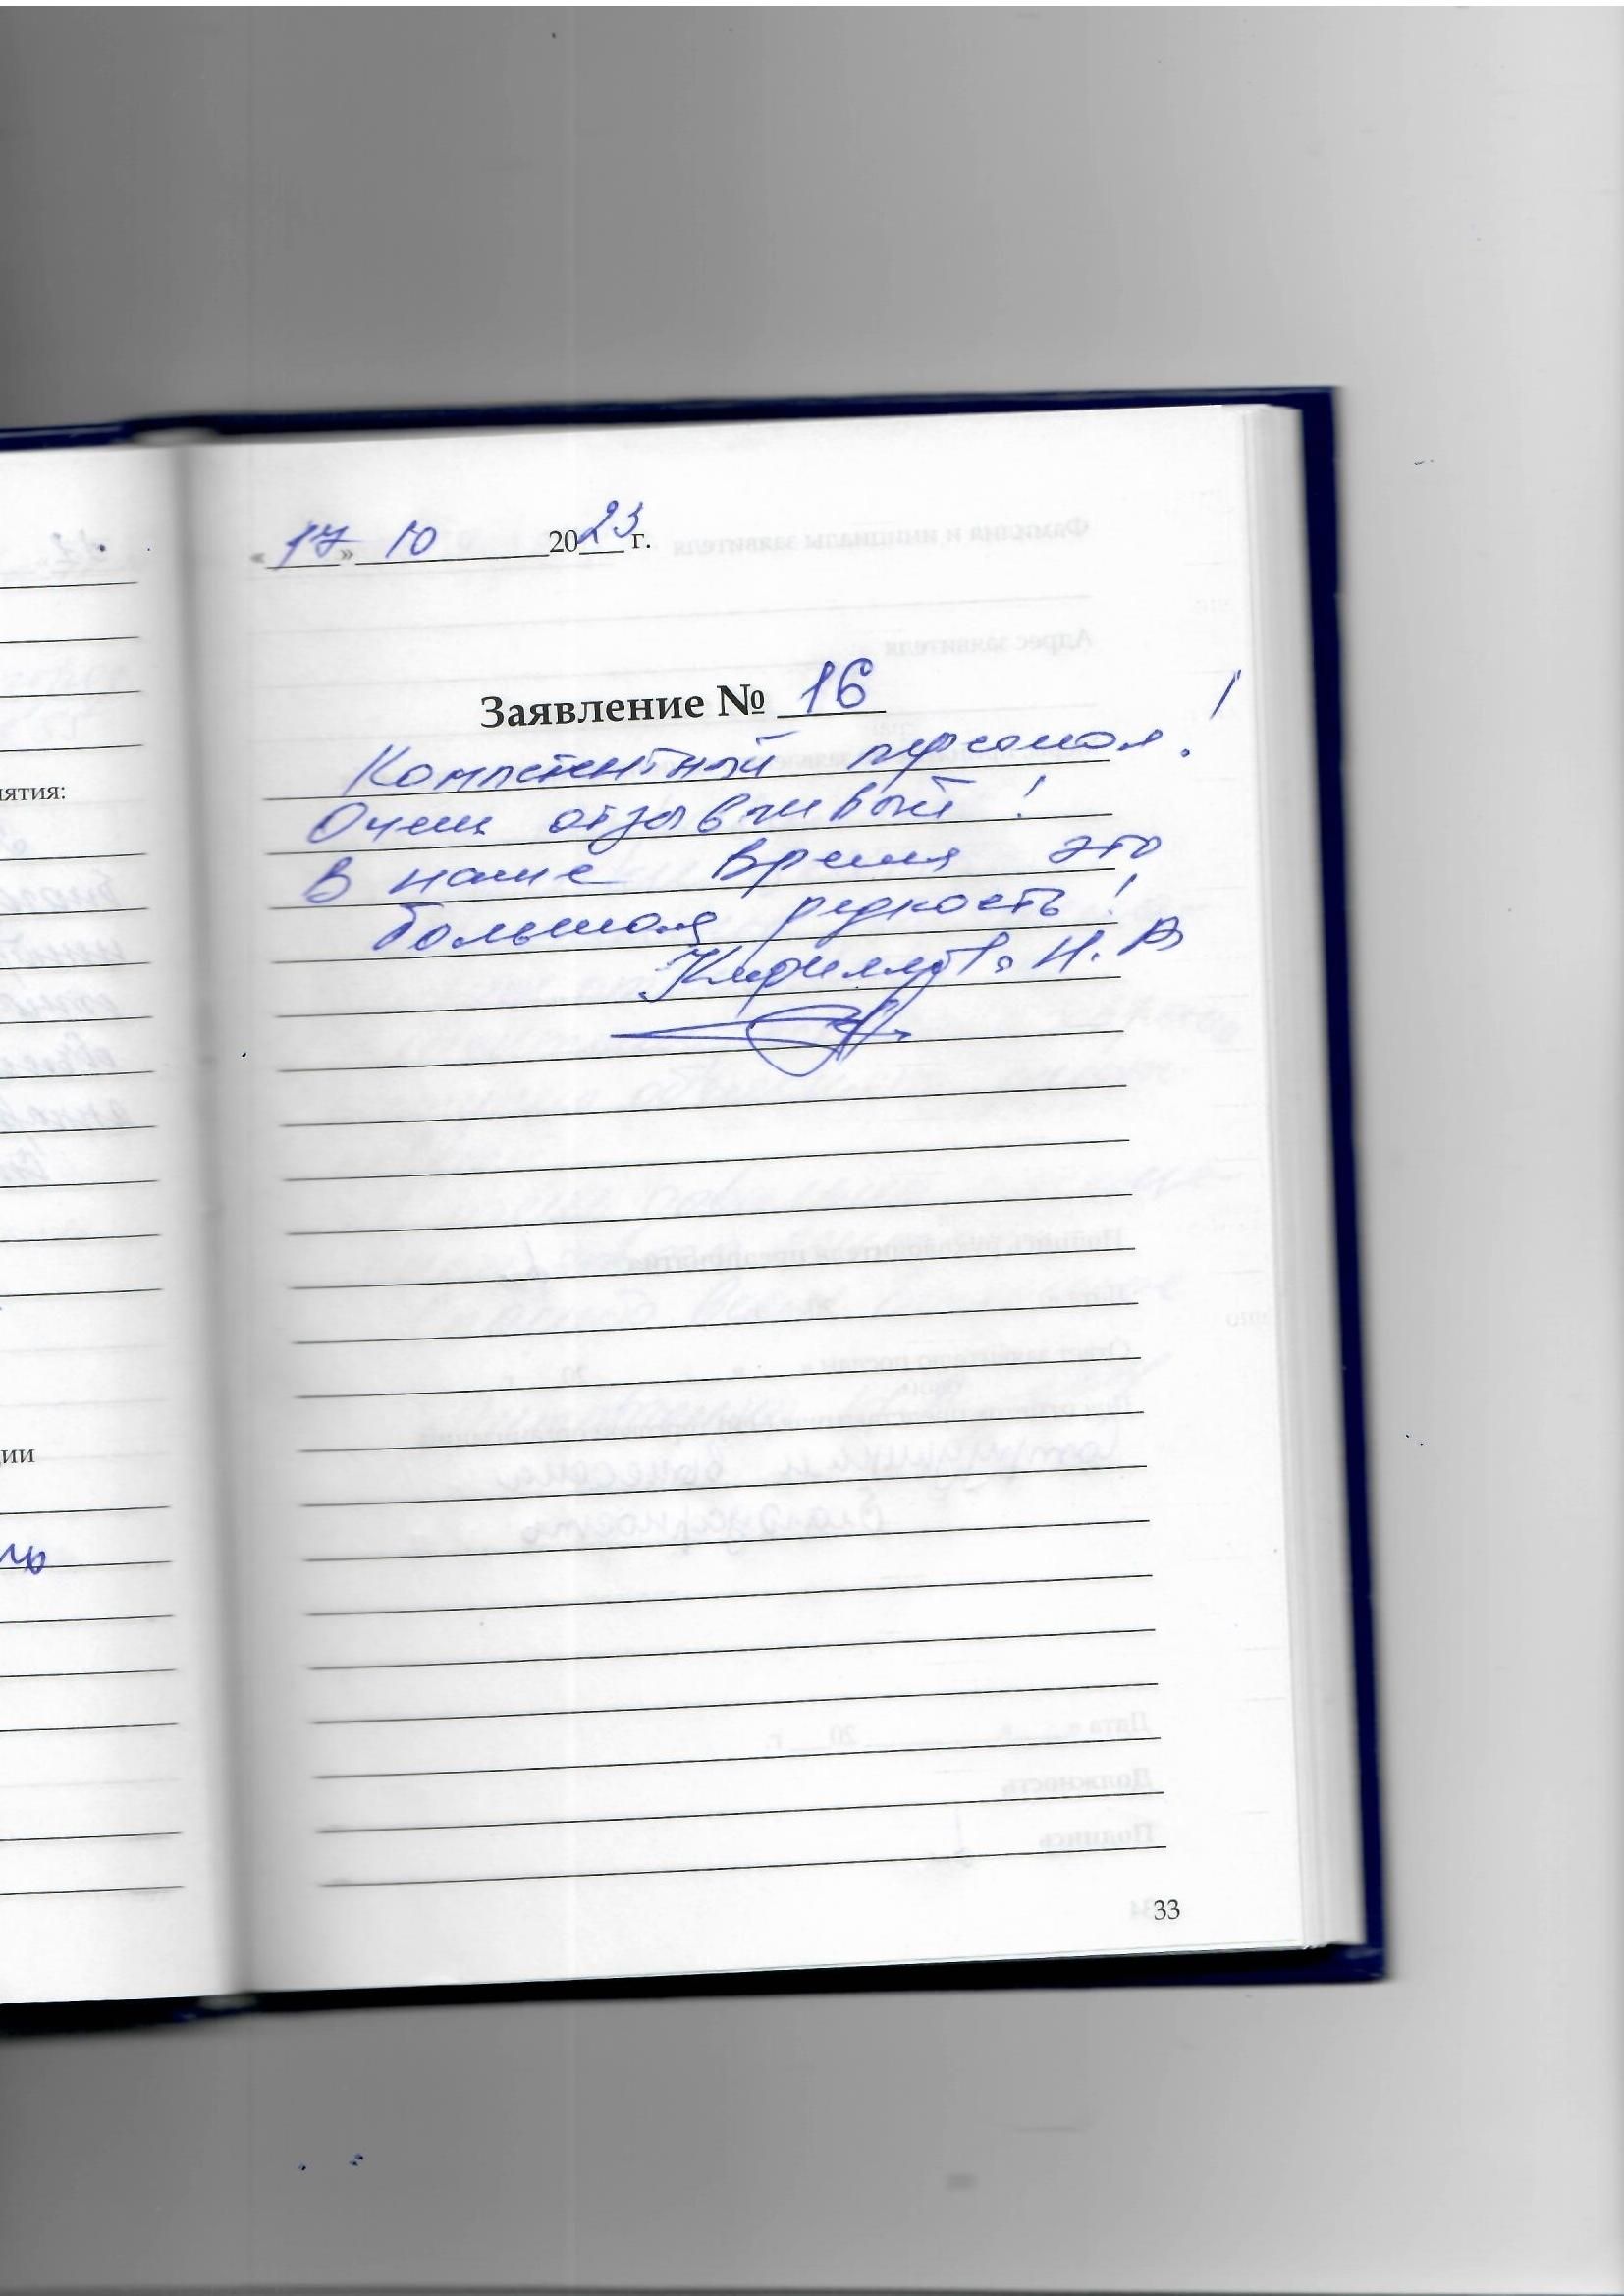 «17» 10 2023 г.
Заявление № 16
Компетентный персонал!
Очень отзывчивый!
В наше время это
большая редкость!
Н. В
33
ятия:
ии